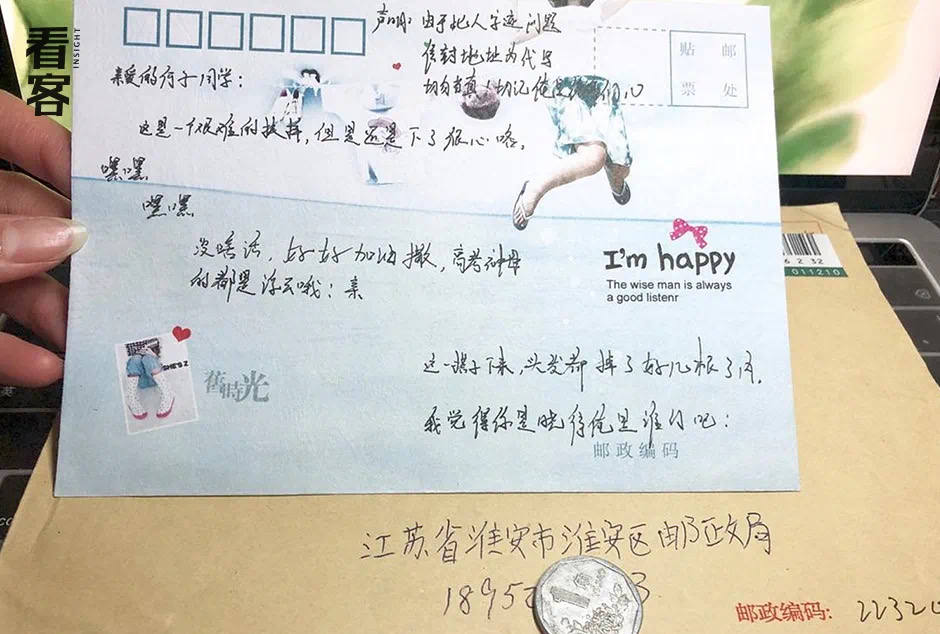 看客
INSIGHT
声明：由于此人字迹问题
信封地址为代写
切勿当真！切记俺是
贴 邮
票 处
亲爱的何子同学：
这是一个很难的抉择，但是还是下了狠心咯。
嘿嘿
嘿嘿
没啥话，好好加油撒，高考神马
的都是浮云哦！亲
I'm happy
The wise man is always
a good listenr
SHE'S Z
舊時光
这一搓下来，头发都掉了好几根了内，
我觉得你是晓得俺是谁的吧：
邮政编码
6 2 32
011210
江苏省淮安市淮安区邮政局
1895 3
邮政编码: 22320
1